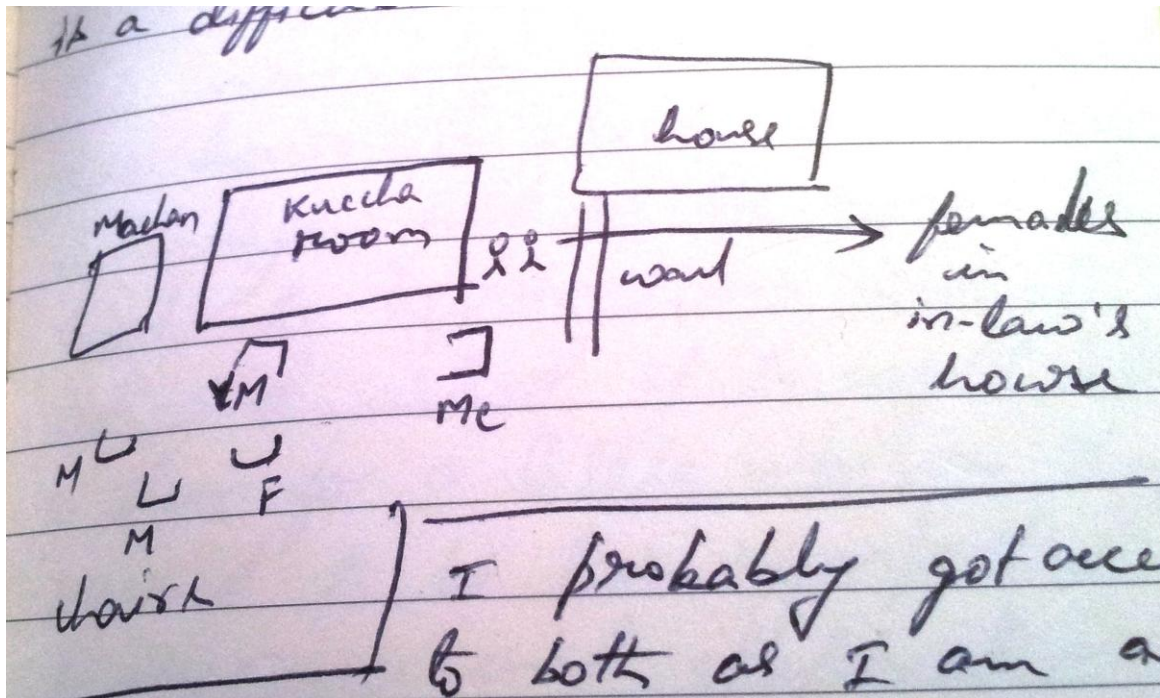 is a
house
Machan
Kuccha
room
females
in
in-law's
house
wall
M
Me
M
F
M
chairs
I probably got acce
to both as I am a